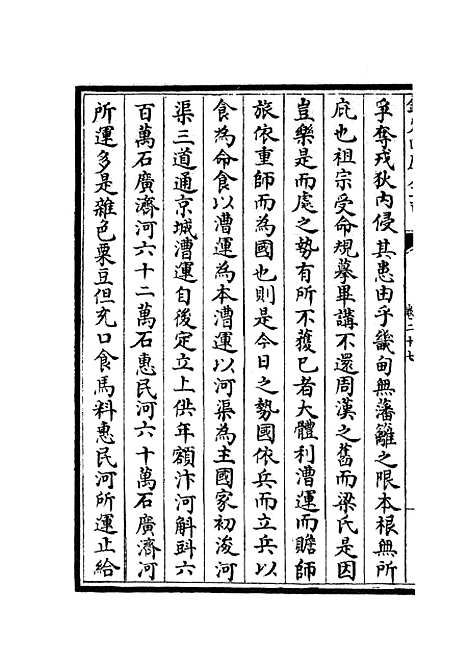 卷二十七
孚奪戎狄內侵其患由乎畿甸無藩籬之限本根無所
庇也祖宗受命規摹畢講不還周漢之舊而梁氏是因
豈樂是而處之勢有所不獲已者大體利漕運而贍師
旅依重師而為國也則是今日之勢國依兵而立兵以
食為命食以漕運為本漕運以河渠為主國家初浚河
渠三道通京城漕運自後定立上供年額汴河斛㪷六
百萬石廣濟河六十二萬石惠民河六十萬石廣濟河
所運多是雜色粟豆但充口食馬料惠民河所運止給